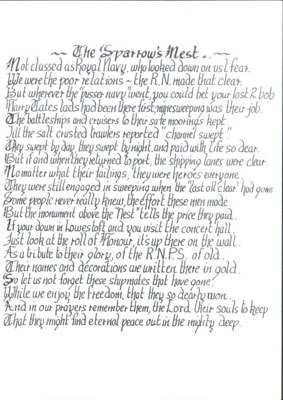 ~~ The Sparrow's Nest. ~~
Not classed as Royal Navy, who looked down on us I fear.
We were the poor relations ~ the R.N. made that clear.
But wherever the "pusser navy" went, you could bet your last 2 bob
Harry Tates lads had been there first, minesweeping was their job.
The battleships and cruisers to their safe moorings kept.
Till the salt crusted trawlers reported "channel swept".
They swept by day, they swept by night, and paid with life so dear.
But if and when they returned to port, the shipping lanes were clear.
No matter what their failings, they were heroes everyone.
They were still engaged in sweeping when the "last all clear" had gone
Some people never really knew, the effort these men made.
But the monument above the "Nest" tells the price they paid.
If your down in Lowestoft and you visit the concert hall
Just look at the roll of Honour, its up there on the wall.
As a tribute to their glory, of the R.N.P.S. of old.
Their names and decorations are written there in gold.
So let us not forget these shipmates that have gone.
While we enjoy the freedom, that they so dearly won.
And in our prayers remember them, the Lord, their souls to keep
That they might find eternal peace out in the mighty deep.